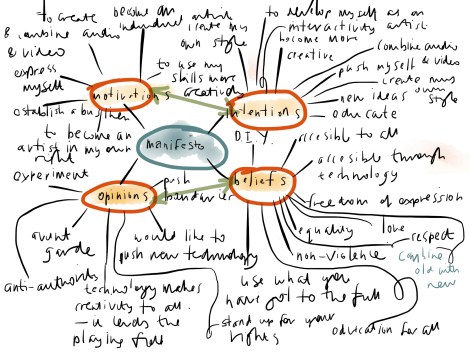 to create
& combine audio
& video
become an
individual artist
create my
own style
to develop myself as an
interactivity artist
become more
creative
combine audio
& video
push myself
create my
own style
new ideas
educate
express
myself
to use my
skills more
creatively
motivations
intentions
establish a
to become an
artist in my own
right
manifesto
D.I.Y.
accesible to all
accesible through
technology
experiment
push
boundaries
opinions
beliefs
freedom of expression
equality
love
respect
non-violence
combine
old with
new
avant
garde
would like to
push new technology
anti-authority
technology makes
creativity to all.
— it levels the
playing field
use what you
have got to the full
stand up for your
rights
education for all